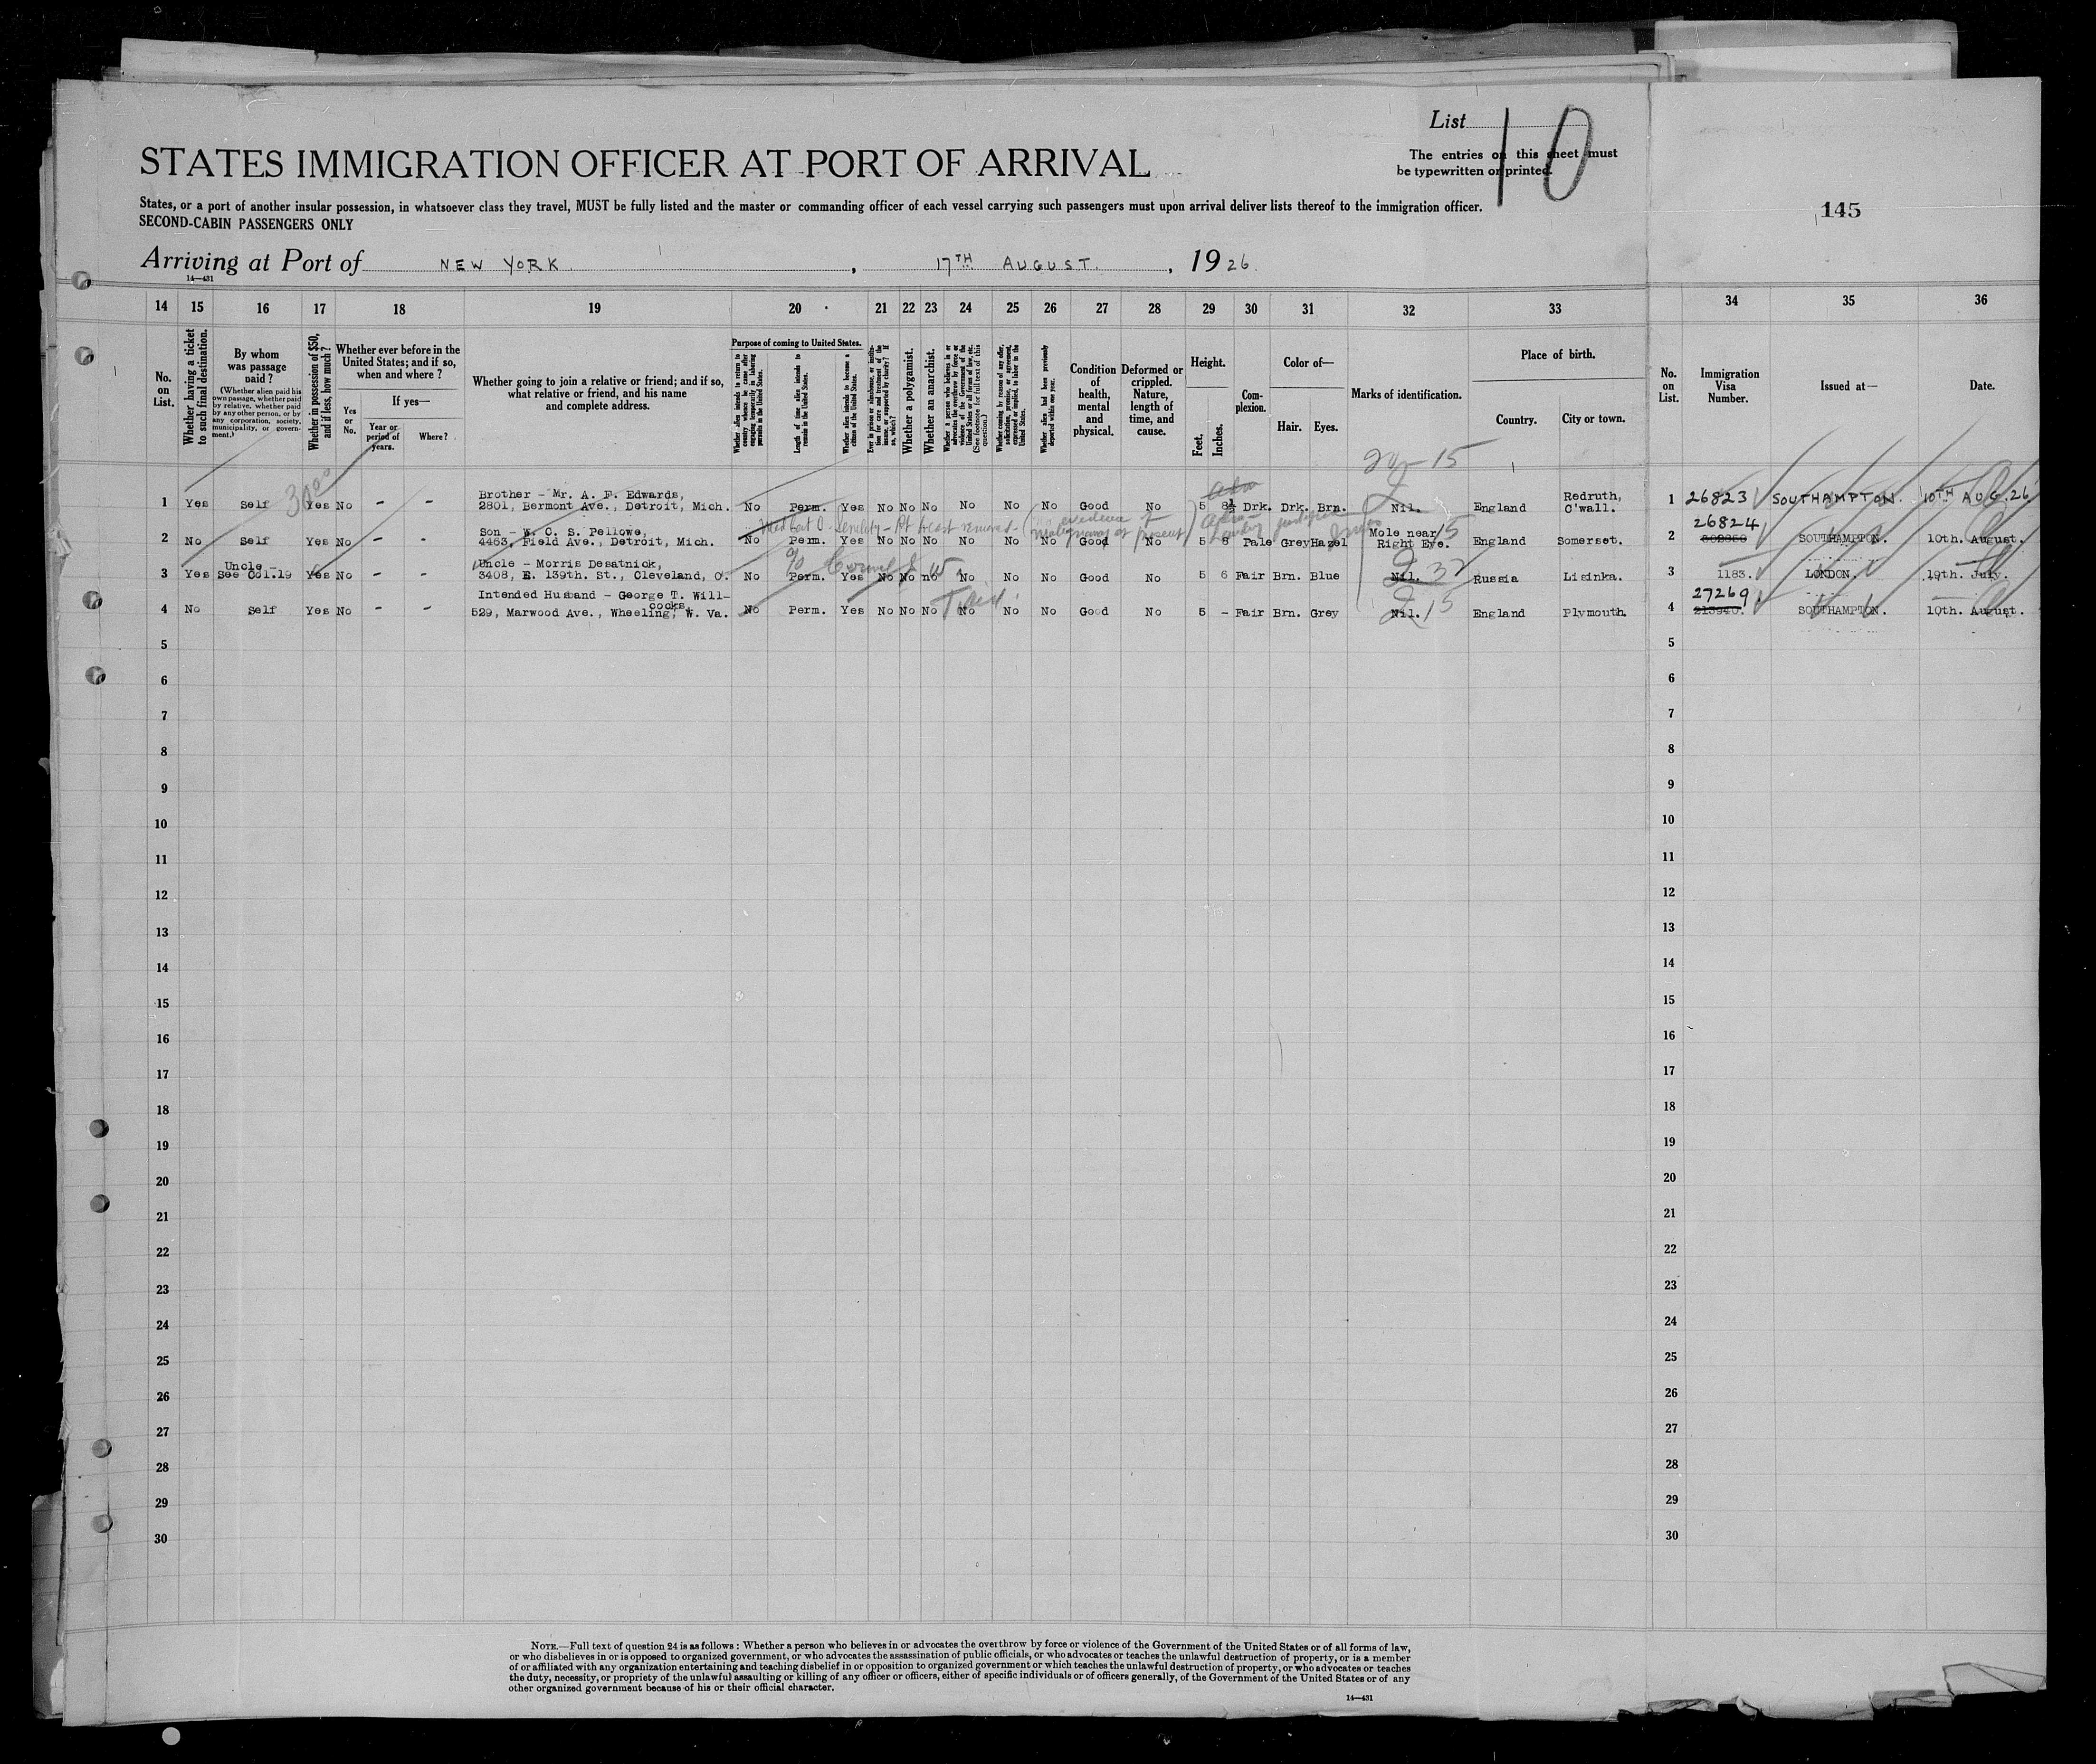 List 10
STATES IMMIGRATION OFFICER AT PORT OF ARRIVAL
The entries on this sheet must
be typewritten or printed.
145
States, or a port of another insular possession, in whatsoever class they travel, MUST be fully listed and the master or commanding officer of each vessel carrying such passengers must upon arrival deliver lists thereof to the immigration officer.
SECOND-CABIN PASSENGERS ONLY
Arriving at Port of NEW YORK, 17TH AUGUST, 1926.
14—431
14 15 16 17 18 19 20 21 22 23 24 25 26 27 28 29 30 31 32 33 34 35 36
No. on List.
Whether having a ticket to such final destination.
By whom was passage paid?
(Whether alien paid his own passage, whether paid by relative, whether paid by any other person, or by any corporation, society, municipality, or government.)
Whether in possession of $50, and if less, how much?
Whether ever before in the United States; and if so, when and where?
Yes or No.
If yes—
Year or period of years.
Where?
Whether going to join a relative or friend; and if so, what relative or friend, and his name and complete address.
Purpose of coming to United States.
Whether alien intends to return to country whence he came after engaging temporarily in laboring pursuits in the United States.
Length of time alien intends to remain in the United States.
Whether alien intends to become a citizen of the United States.
Ever in prison or almshouse, or institution for care and treatment of the insane, or supported by charity? If so, which?
Whether a polygamist.
Whether an anarchist.
Whether a person who believes in or advocates the overthrow by force or violence of the Government of the United States or all forms of law, etc. (See footnote for full text of this question.)
Whether coming by reason of any offer, solicitation, promise, or agreement, expressed or implied, to labor in the United States.
Whether alien had been previously deported within one year.
Condition of health, mental and physical.
Deformed or crippled. Nature, length of time, and cause.
Height.
Feet. Inches.
Complexion.
Color of—
Hair. Eyes.
Marks of identification.
Place of birth.
Country. City or town.
No. on List.
Immigration Visa Number.
Issued at—
Date.
Brother - Mr. A. F. Edwards,
1 Yes Self 3000 Yes No - - 2801, Bermont Ave., Detroit, Mich. No Perm. Yes No No No No No No Good No 5 8½ Drk. Drk. Brn. Nil. England Redruth, C'wall. 1 26823 SOUTHAMPTON. 10TH AUG. 26
Son - W. C. S. Pellowe,
2 No Self Yes No - - 4463, Field Ave., Detroit, Mich. No Perm. Yes No No No No No No Good No 5 8 Pale Grey Hazel Mole near Right Eye. England Somerset. 2 26824 SOUTHAMPTON. 10th. August.
Uncle - Morris Desatnick,
3 Yes Uncle - See Col.19 Yes No - - 3408, E. 139th. St., Cleveland, O. No Perm. Yes No No no No No No Good No 5 6 Fair Brn. Blue Nil. Russia Lisinka. 3 1183. LONDON. 19th. July.
Intended Husband - George T. Will-
cocks,
4 No Self Yes No - - 529, Marwood Ave., Wheeling, W. Va. No Perm. Yes No No No No No No Good No 5 - Fair Brn. Grey Nil. England Plymouth. 4 27269. 213940. SOUTHAMPTON. 10th. August.
5 5
6 6
7 7
8 8
9 9
10 10
11 11
12 12
13 13
14 14
15 15
16 16
17 17
18 18
19 19
20 20
21 21
22 22
23 23
24 24
25 25
26 26
27 27
28 28
29 29
30 30
NOTE.—Full text of question 24 is as follows: Whether a person who believes in or advocates the overthrow by force or violence of the Government of the United States or of all forms of law,
or who disbelieves in or is opposed to organized government, or who advocates the assassination of public officials, or who advocates or teaches the unlawful destruction of property, or is a member
of or affiliated with any organization entertaining and teaching disbelief in or opposition to organized government or which teaches the unlawful destruction of property, or who advocates or teaches
the duty, necessity, or propriety of the unlawful assaulting or killing of any officer or officers, either of specific individuals or of officers generally, of the Government of the United States or of any
other organized government because of his or their official character.
14—431